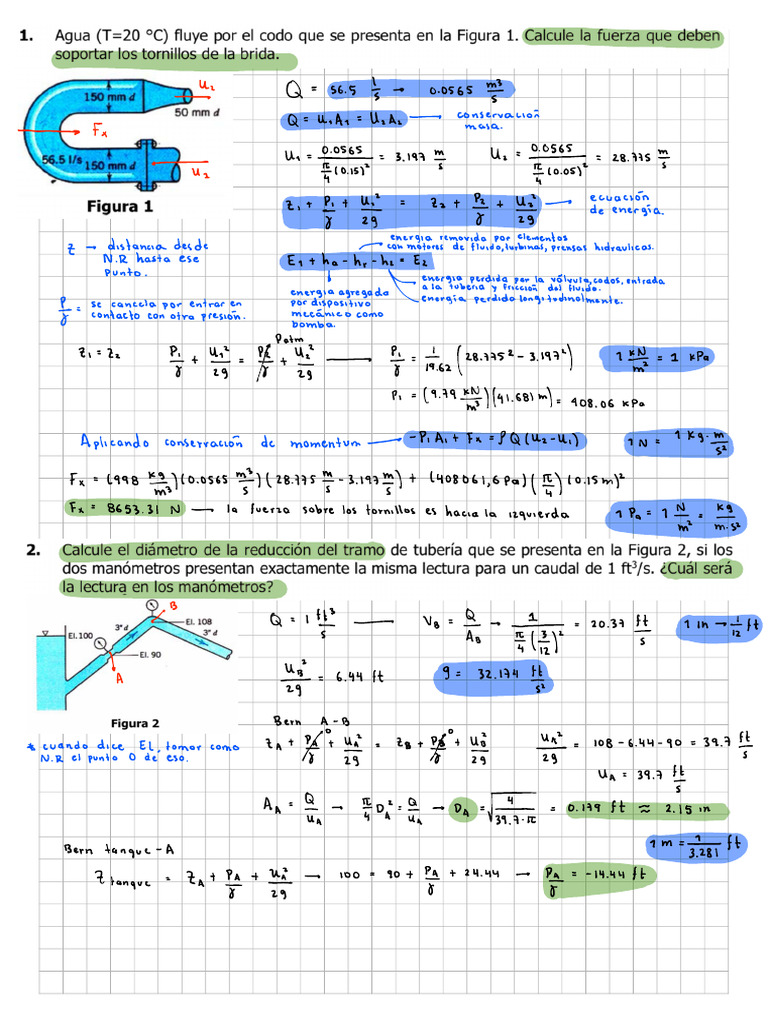 1. Agua (T=20 °C) fluye por el codo que se presenta en la Figura 1. Calcule la fuerza que deben
soportar los tornillos de la brida.
150 mm d
U₂
50 mm d
Fx
56.5 l/s 150 mm d
U₂
Figura 1
Q = 56.5 l/s → 0.0565 m³/s
Q = U₁A₁ = U₂A₂ → conservación masa.
U₁ = 0.0565 / (π/4 (0.15)²) = 3.197 m/s U₂ = 0.0565 / (π/4 (0.05)²) = 28.775 m/s
Z₁ + P₁/γ + U₁²/2g = Z₂ + P₂/γ + U₂²/2g → ecuación de energía.
Z → distancia desde
N.R hasta ese
punto.
energia removida por elementos
con motores de fluido, turbinas, prensas hidraulicas.
E₁ + ha - hr - hL = E₂
energia perdida por la válvula, codos, entrada
a la tuberia y fricción del fluido.
energia perdido longitudinalmente.
energia agregada
por dispositivo
mecánico como
bomba.
P/γ = se cancela por entrar en
contacto con otra presión.
Z₁ = Z₂ P₁/γ + U₁²/2g = P₂/γ + U₂²/2g Patm → P₁/γ = 1/19.62 (28.775² - 3.197²) 1 kN/m² = 1 kPa
P₁ = (9.79 kN/m³)(41.681 m) = 408.06 kPa
Aplicando conservación de momentum → -P₁A₁ + Fx = ρQ(U₂-U₁) 1N = 1 kg·m/s²
Fx = (998 kg/m³)(0.0565 m³/s)(28.775 m/s - 3.197 m/s) + (408061,6 Pa)(π/4)(0.15m)²
Fx = 8653.31 N → la fuerza sobre los tornillos es hacia la izquierda 1 Pa = 1 N/m² = kg/m·s²
2. Calcule el diámetro de la reducción del tramo de tubería que se presenta en la Figura 2, si los
dos manómetros presentan exactamente la misma lectura para un caudal de 1 ft³/s. ¿Cuál será
la lectura en los manómetros?
B
El. 108
3" d
3" d
El. 100
El. 90
A
Figura 2
Q = 1 ft³/s → VB = Q/AB → 1 / (π/4 (3/12)²) = 20.37 ft/s 1 in → 1/12 ft
UB²/2g = 6.44 ft g = 32.174 ft/s²
* cuando dice El, tomar como
N.R el punto 0 de eso.
Bern A-B
ZA + PA/γ 0 + UA²/2g = ZB + PB/γ 0 + UB²/2g UA²/2g = 108 - 6.44 - 90 = 39.7 ft/s
UA = 39.7 ft/s
AA = Q/UA → π/4 DA² = Q/UA → DA = √(4/39.7·π) = 0.179 ft ≈ 2.15 in
1 m = 1/3.281 ft
Bern tanque - A
Z tanque = ZA + PA/γ + UA²/2g → 100 = 90 + PA/γ + 24.44 → PA/γ = -14.44 ft